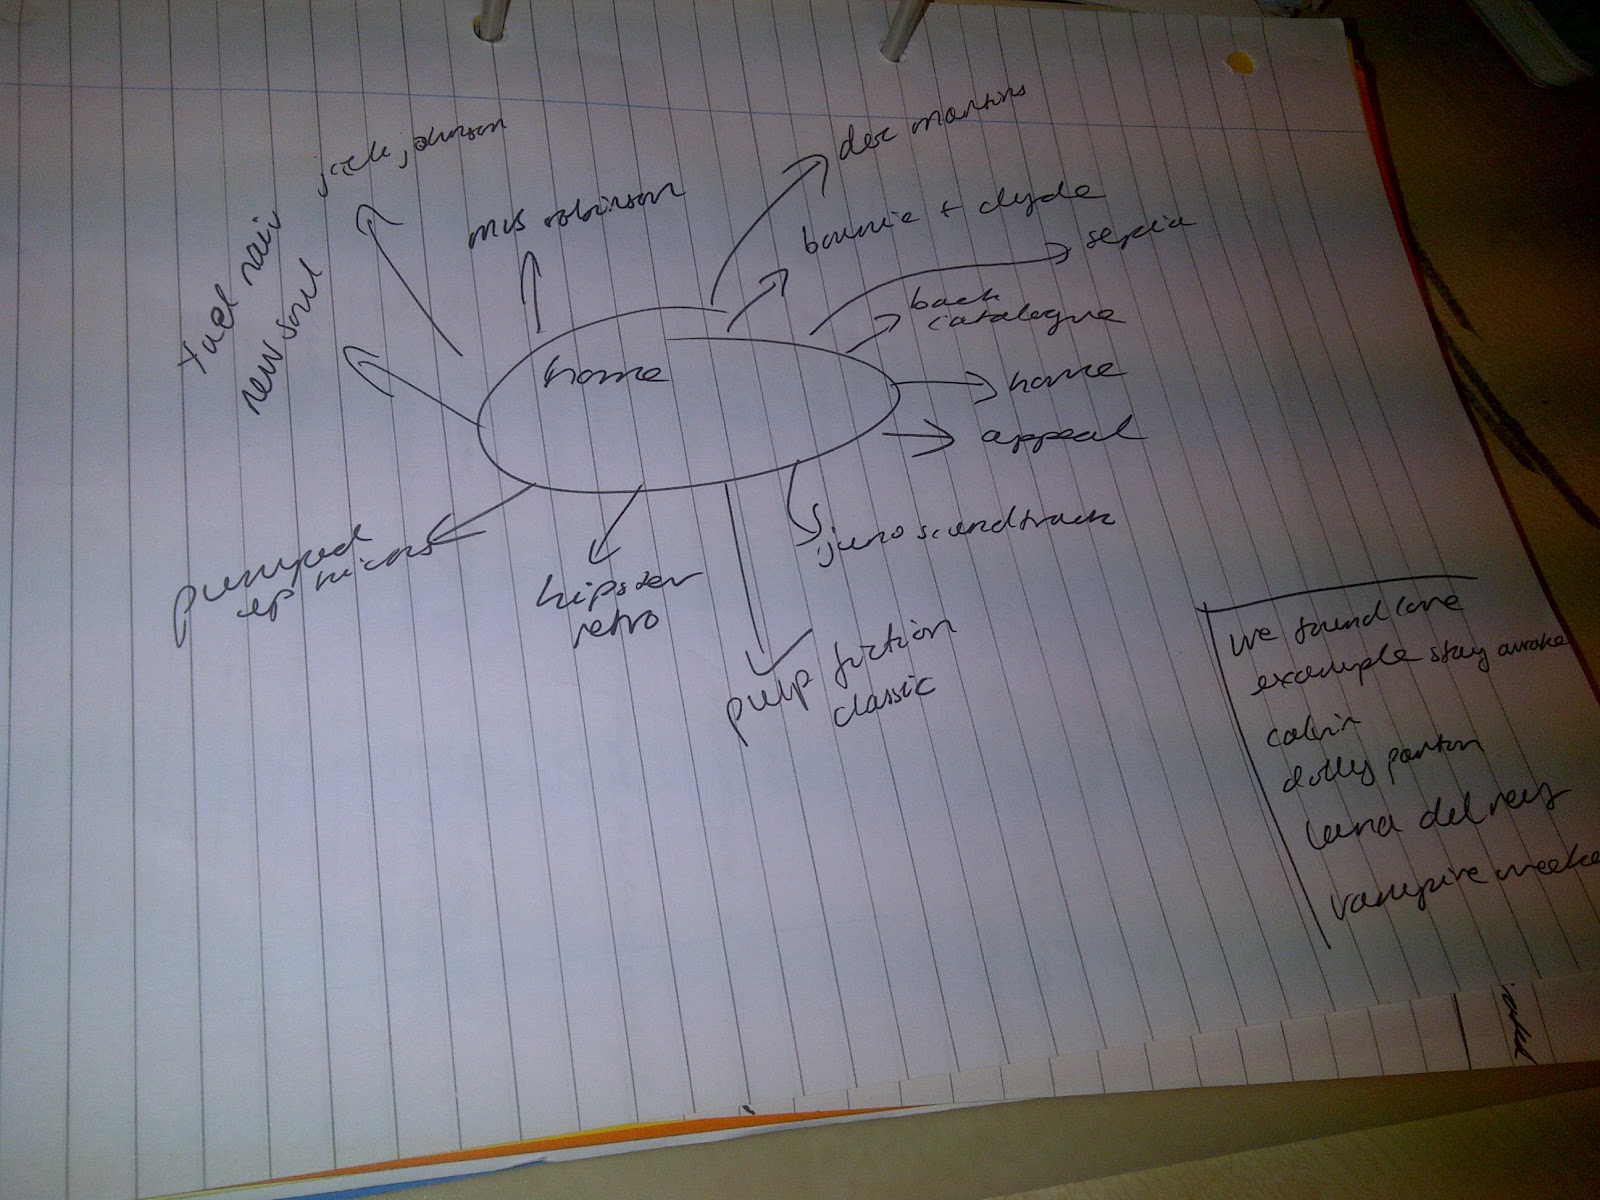 jack johnson
mrs robinson
doc martins
bonnie + clyde
sepia
back
catalogue
home
home
appeal
juno soundtrack
pulp fiction
classic
hipster
retro
pumped
up
yael naim
new soul
we found love
example stay awake
calvin
dolly parton
lana del rey
vampire weeke